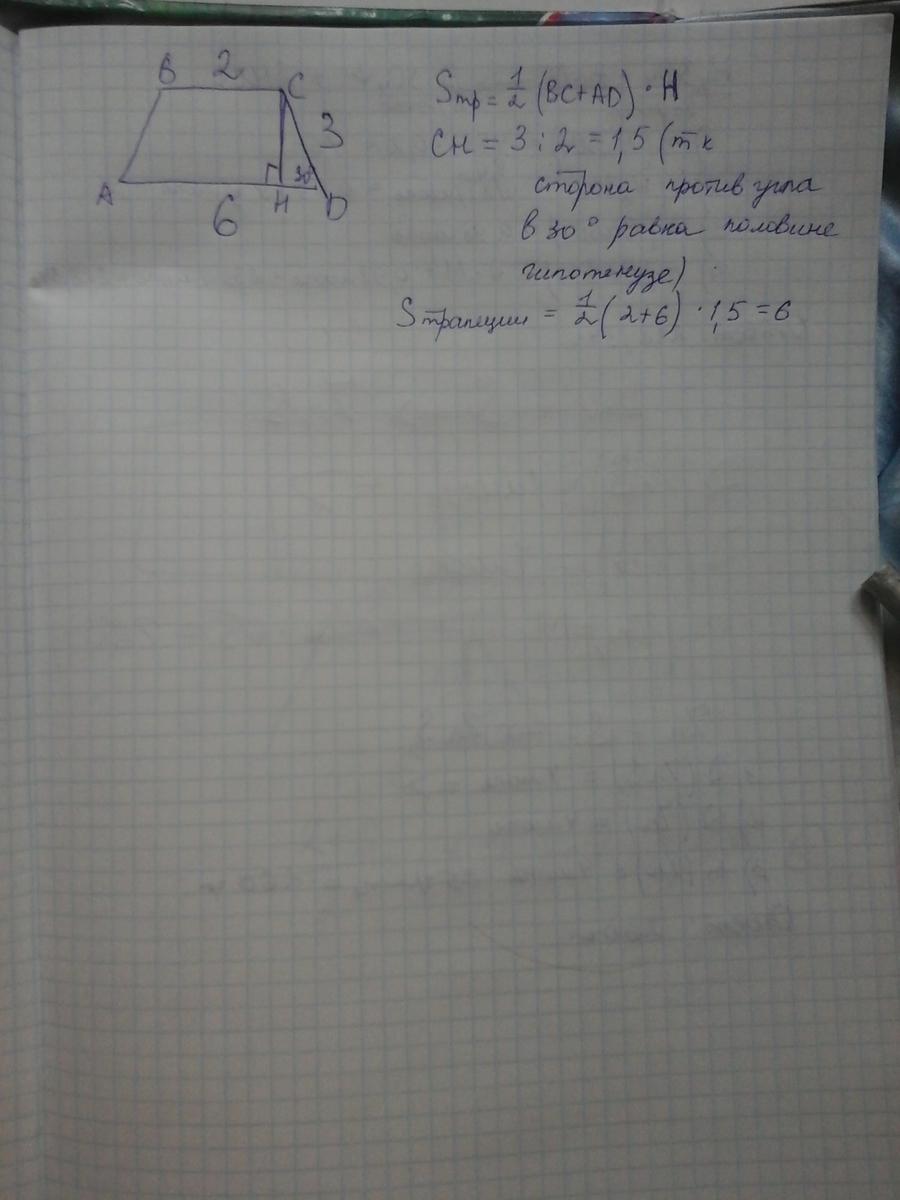 B 2 C
3
A 6 H 30° D
Sтр = 1/2 (BC+AD) · H
CH = 3 : 2 = 1,5 (т к
сторона против угла
в 30° равна половине
гипотенузе)
Sтрапеции = 1/2 (2+6) · 1,5 = 6